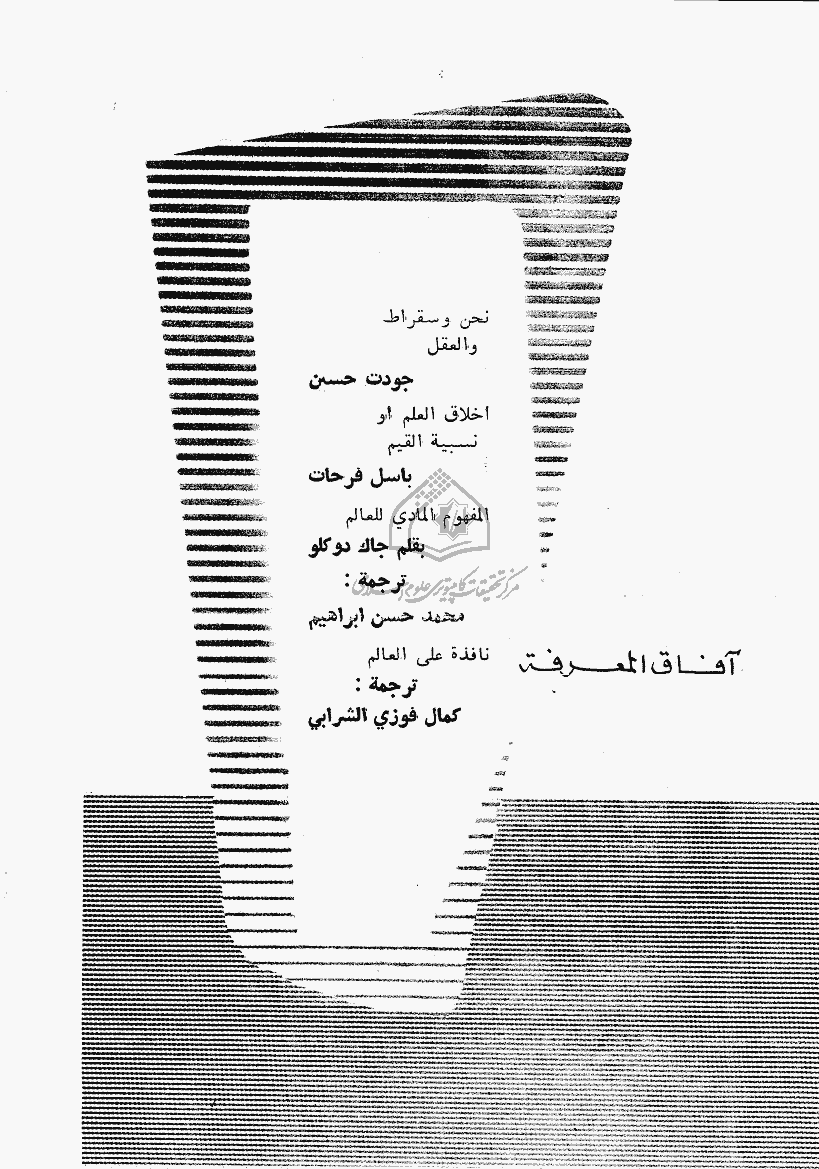 نحن وسقراط
والعقل
جودت حسن
أخلاق العلم أو
نسبية القيم
باسل فرحات
المفهوم المادي للعالم
بقلم جاك دوكلو
ترجمة :
محمد حسن ابراهيم
نافذة على العالم
ترجمة :
كمال فوزي الشرابي
آفاق المعرفة
مركز تحقيقات كامپيوتری علوم اسلامی